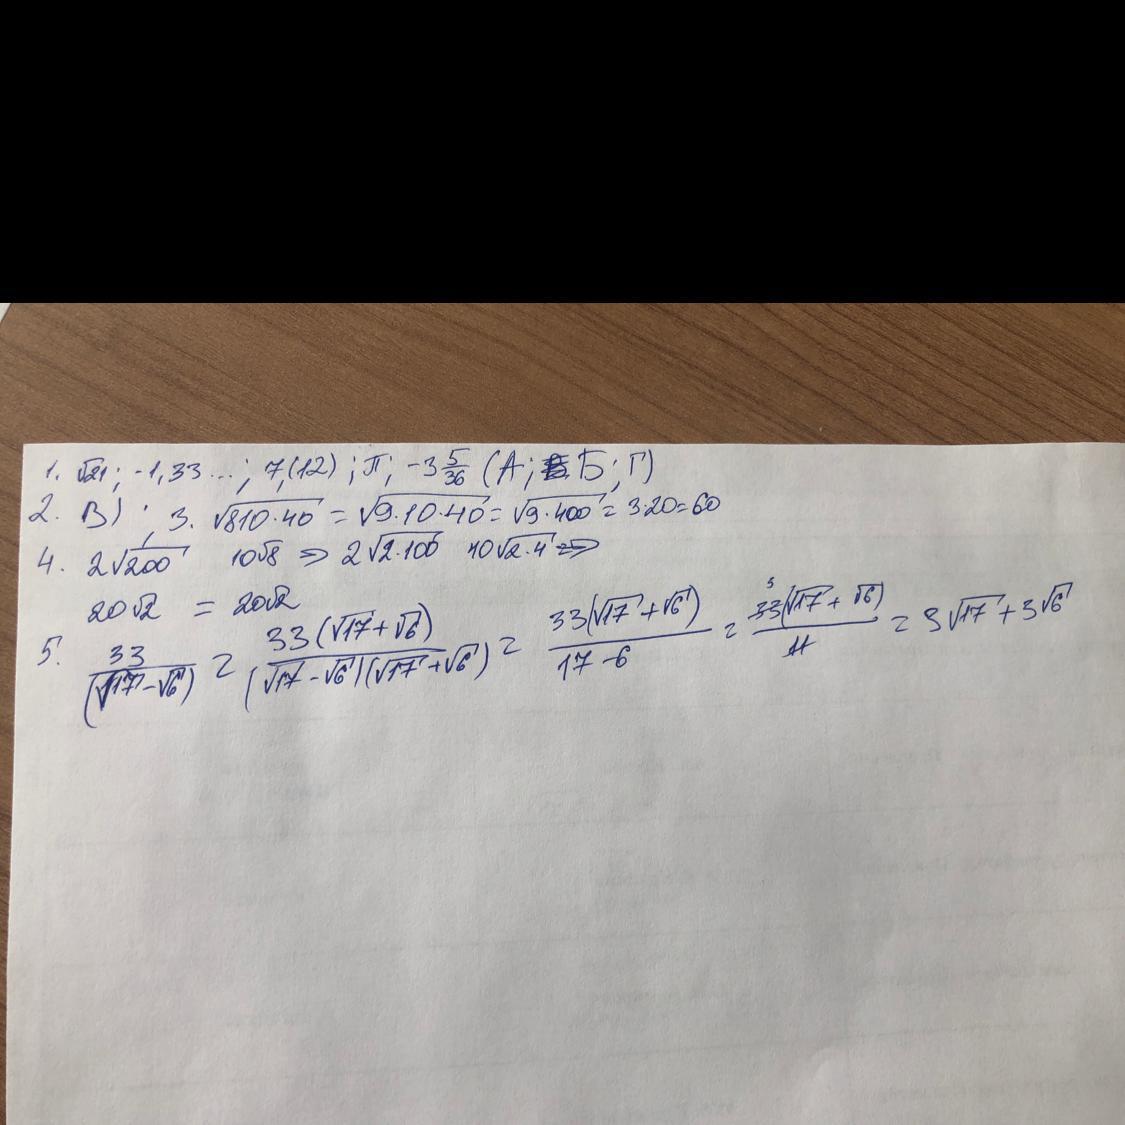 1. √21; -1,33...; 7,(12); π; -3 5/36 (А; Б; Г)
2. В) ; 3. √810·40 = √9·10·40 = √9·400 = 3·20=60
4. 2√200 10√8 => 2√2·100 10√2·4 =>
20√2 = 20√2
5. 33/(√17-√6) = 33(√17+√6)/(√17-√6)(√17+√6) = 33(√17+√6)/17-6 = 33(√17+√6)/11 = 3√17+3√6